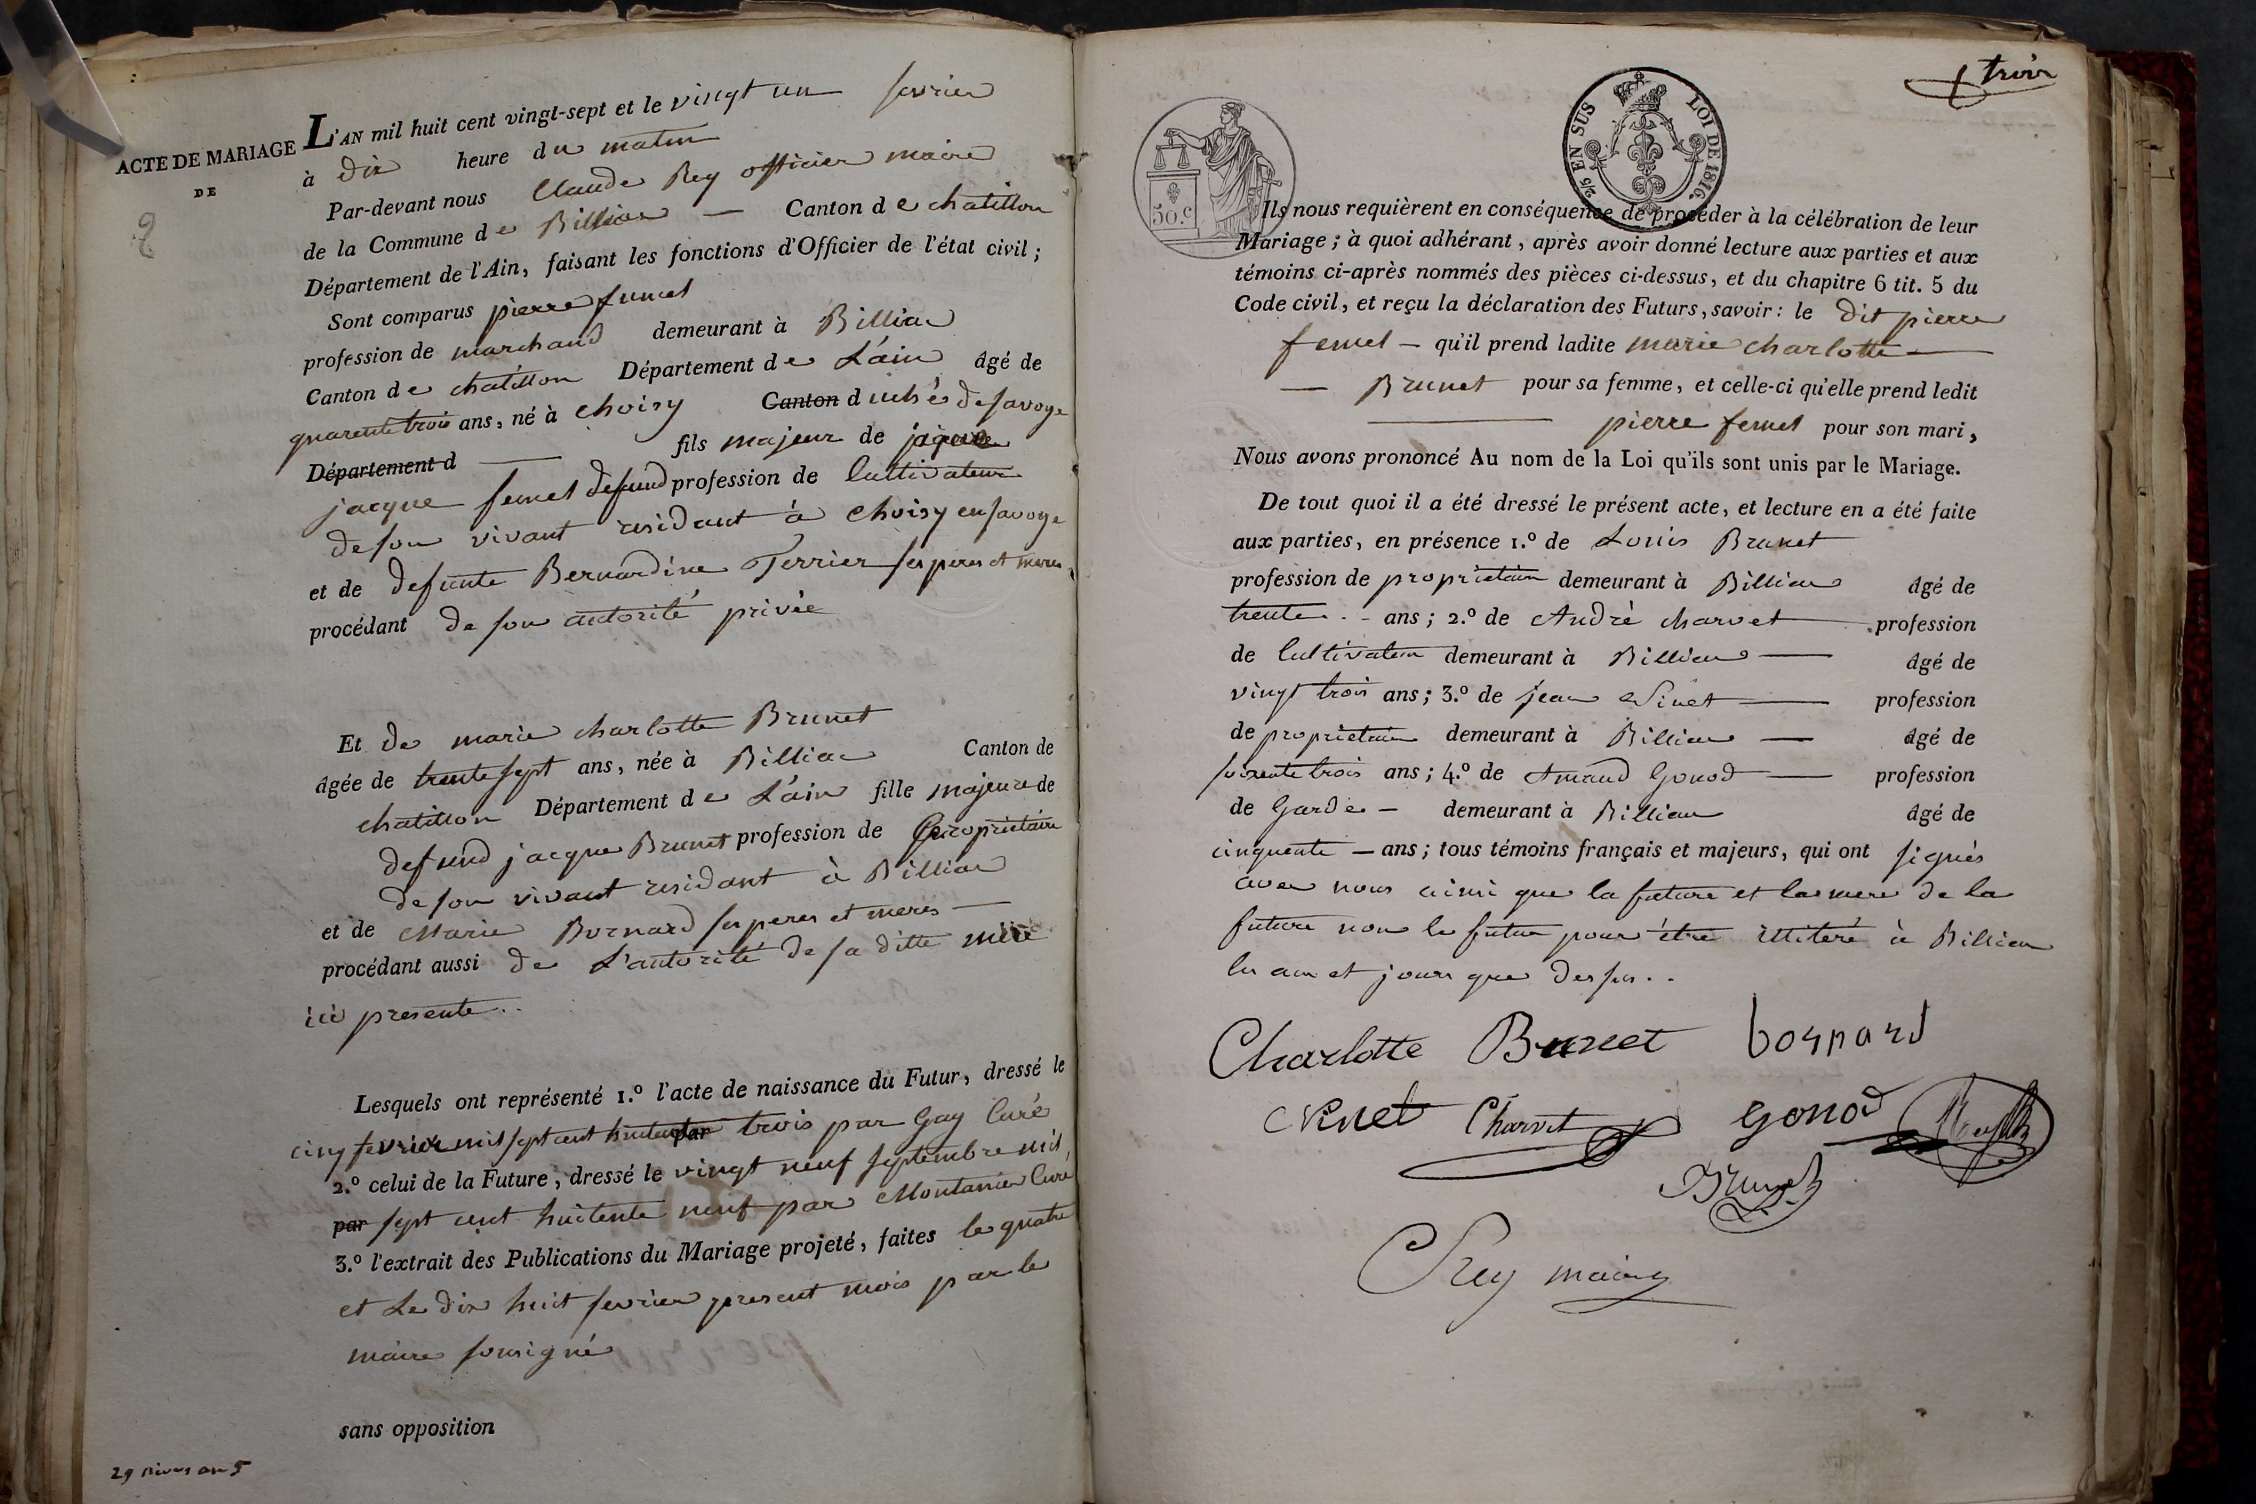 ACTE DE MARIAGE
DE
2
L'AN mil huit cent vingt-sept et le vingt un fevrier
à dix heure du matin
Par-devant nous Claude Rey officier maire
de la Commune de Billiac — Canton de chatillon
Département de l'Ain, faisant les fonctions d'Officier de l'état civil ;
Sont comparus pierre femel
profession de marchand demeurant à Billiac
Canton de chatillon Département de L'ain âgé de
quarente trois ans, né à choisy Canton duché de savoye
Département d — fils majeur de
jacque femel défund profession de Cultivateur
de son vivant residant à choisy en savoye
et de defunte Bernardine Terrier ses peres et meres
procédant de son autorité privée
Et de marie charlotte Brunet
âgée de trente sept ans, née à Billiac Canton de
chatillon Département de L'ain fille majeure de
defund jacque Brunet profession de propriétaire
de son vivant residant à Billiac
et de Marie Bornard ses peres et meres —
procédant aussi de L'autorité de sa ditte mère
ici presente..
Lesquels ont représenté 1.º l'acte de naissance du Futur, dressé le
cinq fevrier mil sept cent huitente par trois par Gay Curé
2.º celui de la Future, dressé le vingt neuf septembre mil
par sept cent huitente neuf par Montanier Curé
3.º l'extrait des Publications du Mariage projeté, faites le quatre
et Le dix huit fevrier present mois par le
maire sousigné
sans opposition
29 nivos an 5
trois
2/5 EN SUS LOI DE 1816.
50.c
Ils nous requièrent en conséquence de procéder à la célébration de leur
Mariage ; à quoi adhérant, après avoir donné lecture aux parties et aux
témoins ci-après nommés des pièces ci-dessus, et du chapitre 6 tit. 5 du
Code civil, et reçu la déclaration des Futurs, savoir : le dit pierre
femel — qu'il prend ladite marie charlotte —
— Brunet pour sa femme, et celle-ci qu'elle prend ledit
— pierre femel pour son mari,
Nous avons prononcé Au nom de la Loi qu'ils sont unis par le Mariage.
De tout quoi il a été dressé le présent acte, et lecture en a été faite
aux parties, en présence 1.º de Louis Brunet
profession de proprietaire demeurant à Billiac âgé de
trente - ans ; 2.º de André charvet — profession
de Cultivateur demeurant à Billiac — âgé de
vingt trois ans ; 3.º de jean Vinet — profession
de proprietaire demeurant à Billiac — âgé de
soixente trois ans ; 4.º de Amand Gonod — profession
de Garde — demeurant à Billiac âgé de
cinquente — ans ; tous témoins français et majeurs, qui ont signés
avec nous ainsi que la future et la mere de la
future non le futur pour être illiteré à Billiac
les an et jours que dessus..
Charlotte Brunet bornard
Vinet Charvet gonod
Brunet
Rey maire